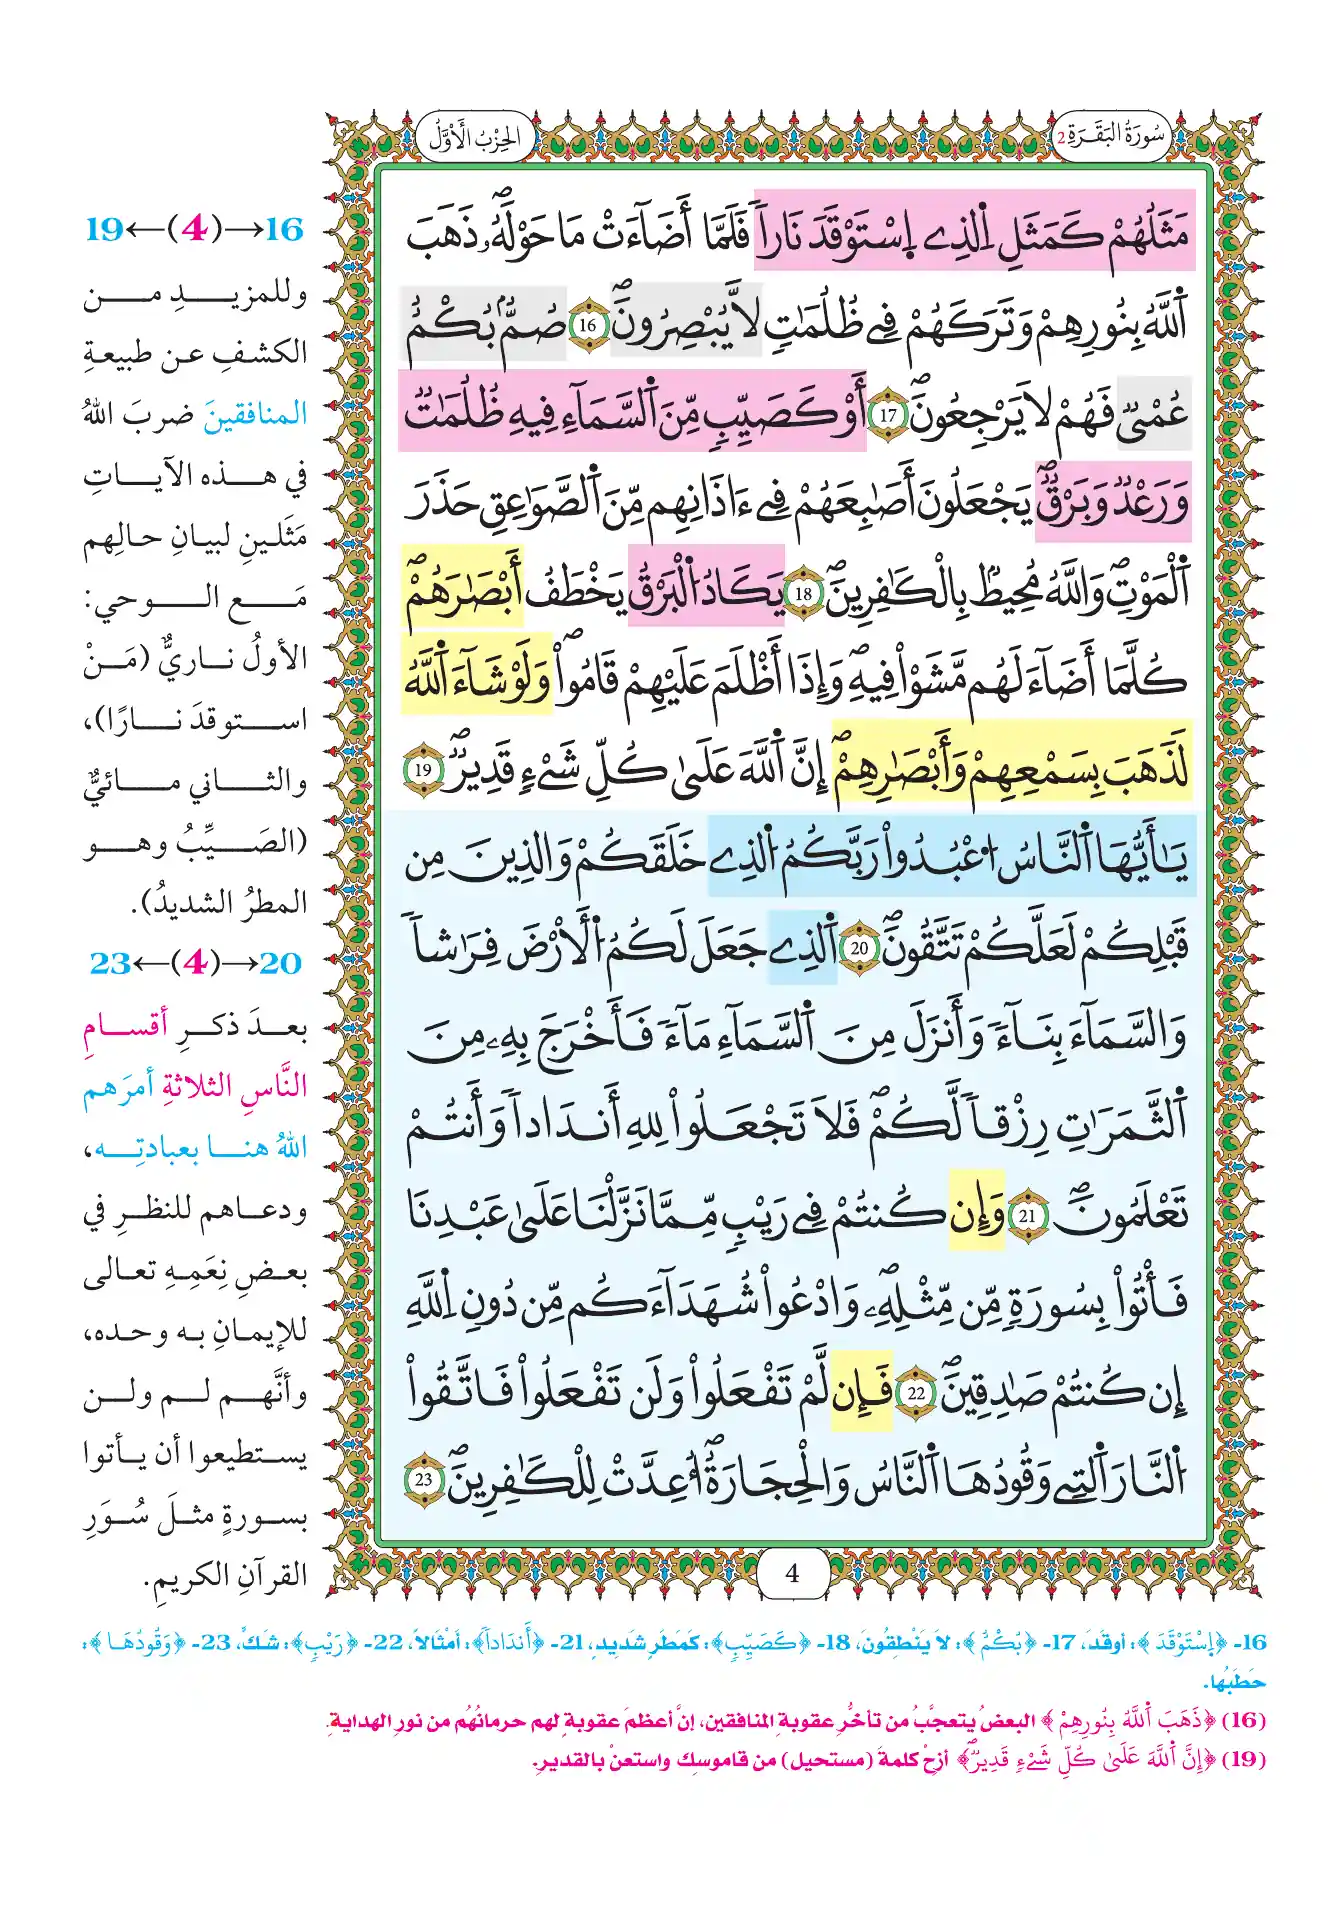 سُورَةُ البَقَرَةِ 2
الحِزْبُ الأَوَّلُ
مَثَلُهُمْ كَمَثَلِ اِ۬لذِے اِ۪سْتَوْقَدَ نَاراٗ فَلَمَّا أَضَآءَتْ مَا حَوْلَهُۥ ذَهَبَ
اَ۬للَّهُ بِنُورِهِمْ وَتَرَكَهُمْ فِے ظُلُمَٰتٖ لَّا يُبْصِرُونَۖ 16 صُمُّۢ بُكْمٌ
عُمْىٞ فَهُمْ لَا يَرْجِعُونَۖ 17 أَوْ كَصَيِّبٖ مِّنَ اَ۬لسَّمَآءِ فِيهِ ظُلُمَٰتٞ
وَرَعْدٞ وَبَرْقٞۖ يَجْعَلُونَ أَصَٰبِعَهُمْ فِےٓ ءَاذَانِهِم مِّنَ اَ۬لصَّوَٰعِقِ حَذَرَ
اَ۬لْمَوْتِۖ وَاللَّهُ مُحِيطُۢ بِالْكَٰفِرِينَۖ 18 يَكَادُ اُ۬لْبَرْقُ يَخْطَفُ أَبْصَٰرَهُمْۖ
كُلَّمَآ أَضَآءَ لَهُم مَّشَوْاْ فِيهِۖ وَإِذَآ أَظْلَمَ عَلَيْهِمْ قَامُواْۖ وَلَوْ شَآءَ اَ۬للَّهُ
لَذَهَبَ بِسَمْعِهِمْ وَأَبْصَٰرِهِمْۖ إِنَّ اَ۬للَّهَ عَلَىٰ كُلِّ شَےْءٖ قَدِيرٞۖ 19
يَٰٓأَيُّهَا اَ۬لنَّاسُ اُ۟عْبُدُواْ رَبَّكُمُ اُ۬لذِے خَلَقَكُمْ وَالذِينَ مِن
قَبْلِكُمْ لَعَلَّكُمْ تَتَّقُونَۖ 20 اَ۬لذِے جَعَلَ لَكُمُ اُ۬لْأَرْضَ فِرَٰشاٗ
وَالسَّمَآءَ بِنَآءٗ وَأَنزَلَ مِنَ اَ۬لسَّمَآءِ مَآءٗ فَأَخْرَجَ بِهِۦ مِنَ
اَ۬لثَّمَرَٰتِ رِزْقاٗ لَّكُمْۖ فَلَا تَجْعَلُواْ لِلهِ أَندَاداٗ وَأَنتُمْ
تَعْلَمُونَۖ 21 وَإِن كُنتُمْ فِے رَيْبٖ مِّمَّا نَزَّلْنَا عَلَىٰ عَبْدِنَا
فَأْتُواْ بِسُورَةٖ مِّن مِّثْلِهِۦۖ وَادْعُواْ شُهَدَآءَكُم مِّن دُونِ اِ۬للَّهِ
إِن كُنتُمْ صَٰدِقِينَۖ 22 فَإِن لَّمْ تَفْعَلُواْ وَلَن تَفْعَلُواْ فَاتَّقُواْ
اُ۬لنَّارَ اَ۬لتِے وَقُودُهَا اَ۬لنَّاسُ وَالْحِجَارَةُۖ أُعِدَّتْ لِلْكَٰفِرِينَۖ 23
4
16→(4)←19
وللمزيدِ من
الكشفِ عن طبيعةِ
المنافقينَ ضربَ اللهُ
في هذه الآياتِ
مَثَلينِ لبيانِ حالِهم
مَع الوحي:
الأولُ ناريٌّ (مَنْ
استوقدَ نارًا)،
والثاني مائيٌّ
(الصَيِّبُ وهو
المطرُ الشديدُ).
20→(4)←23
بعدَ ذكرِ أقسامِ
النَّاسِ الثلاثةِ أمرَهم
اللهُ هنا بعبادتِه،
ودعاهم للنظرِ في
بعضِ نِعَمِهِ تعالى
للإيمانِ به وحده،
وأنَّهم لم ولن
يستطيعوا أن يأتوا
بسورةٍ مثلَ سُوَرِ
القرآنِ الكريمِ.
16- ﴿اِ۪سْتَوْقَدَ﴾: أوقَدَ، 17- ﴿بُكْمٌ﴾: لا يَنْطِقُونَ، 18- ﴿كَصَيِّبٖ﴾: كَمَطَرٍ شَدِيدٍ، 21- ﴿أَندَاداٗ﴾: أمْثَالاً، 22- ﴿رَيْبٖ﴾: شَكٍّ، 23- ﴿وَقُودُهَا﴾:
حَطَبُها.
(16) ﴿ذَهَبَ اَ۬للَّهُ بِنُورِهِمْ﴾ البعضُ يتعجَّبُ من تأخُّرِ عقوبةِ المنافقين، إنَّ أعظمَ عقوبةٍ لهم حرمانُهُم من نورِ الهدايةِ.
(19) ﴿إِنَّ اَ۬للَّهَ عَلَىٰ كُلِّ شَےْءٖ قَدِيرٞۖ﴾ أزحْ كلمةَ (مستحيل) من قاموسِك واستعنْ بالقديرِ.